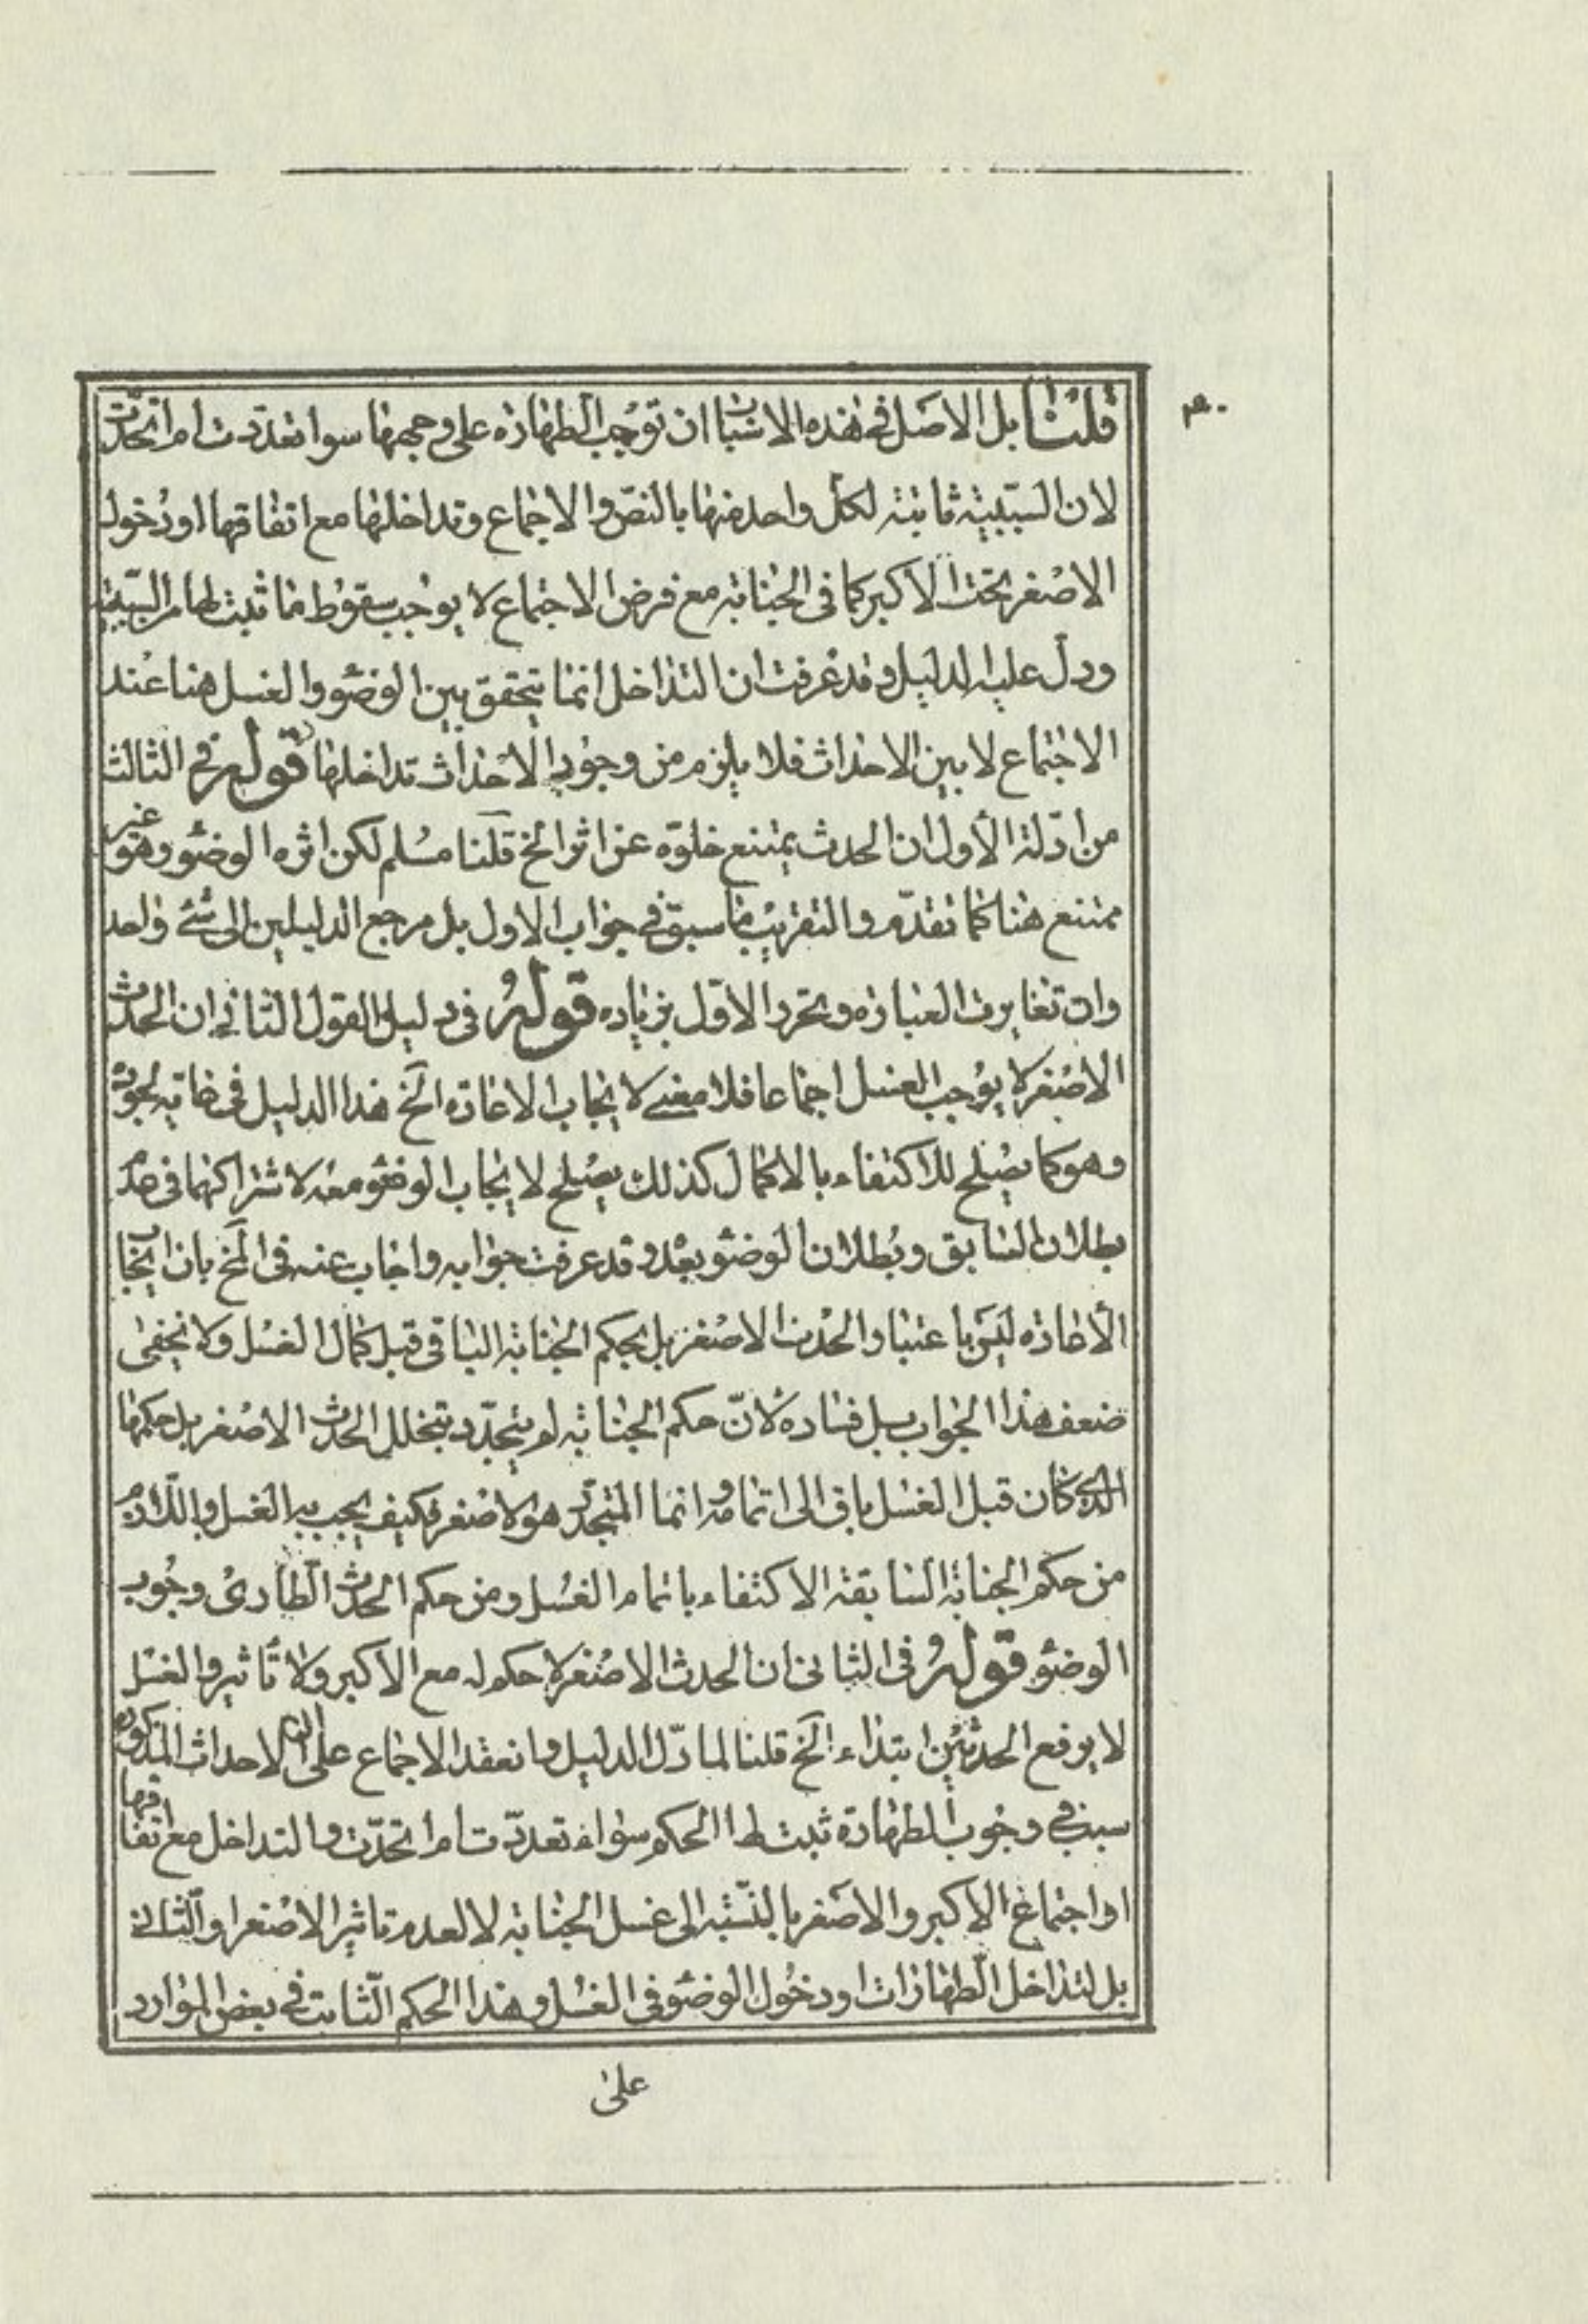 ٤٠
قلنا بل الاصل فى هذه الاسباب ان توجب الطهارة على وجهها سوا تعددت ام اتحدت
لان السببية ثابتة لكل واحد منها بالنص والاجماع وتداخلها مع اتفاقها او دخول
الاصغر تحت الاكبر كما فى الجنابة مع فرض الاجتماع لا يوجب سقوط ما ثبت لها من السببية
ودل عليه الدليل وقد عرفت ان التداخل انما يتحقق بين الوضوء والغسل هنا عند
الاجتماع لا بين الاحداث فلا يلزم من وجود الاحداث تداخلها قوله فى الثالث
من ادلة الأول ان الحدث يمتنع خلوّه عن اثر الخ قلنا مسلم لكن اثره الوضوء وهو غير
ممتنع هنا كما تقدم والتقريب ما سبق فى جواب الاول بل مرجع الدليلين الى شئ واحد
وان تغايرت العبارة وتحرر الاول بزيادة قوله فى دليل القول الثانى ان الحدث
الاصغر لا يوجب الغسل اجماعا فلا معنى لايجاب الاعادة الخ هذا الدليل فى غاية الجودة
وهو كما يصلح للاكتفاء بالاكمال كذلك يصلح لايجاب الوضوء معه لاشتراكهما فى عدم
بطلان السابق وبطلان الوضوء بعد وقد عرفت جوابه واجاب عنه فى الخ بان ايجاب
الأعادة ليس باعتبار الحدث الاصغر بل بحكم الجنابة الباقى قبل كمال الغسل ولا يخفى
ضعف هذا الجواب بل فساده لانّ حكم الجنابة لم يتجدّد بتخلل الحدث الاصغر بل حكمها
الذى كان قبل الغسل باق الى اتمامه وانما المتجدد هو الاصغر فكيف يجب به الغسل واللازم
من حكم الجنابة السابقة الاكتفاء باتمام الغسل ومن حكم الحدث الطارى وجوب
الوضوء قوله فى الثانى ان الحدث الاصغر لا حكم له مع الاكبر ولا تأثير والغسل
لا يرفع الحدثين ابتداء الخ قلنا لما دل الدليل وانعقد الاجماع على ان الاحداث المذكورة
سبب فى وجوب الطهارة ثبت لها الحكم سواء تعددت ام اتحدت والتداخل مع اتفاقها
او اجتماع الاكبر والاصغر بالنسبة الى غسل الجنابة لا لعدم تاثير الاصغر او الثانى
بل لتداخل الطهارات او دخول الوضوء فى الغسل وهذا الحكم الثابت فى بعض الموارد
على